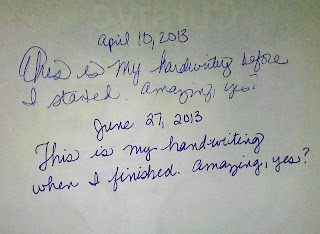 April 10, 2013
This is my handwriting before
I started. Amazing, yes?
June 27, 2013
This is my handwriting
when I finished. Amazing, yes?